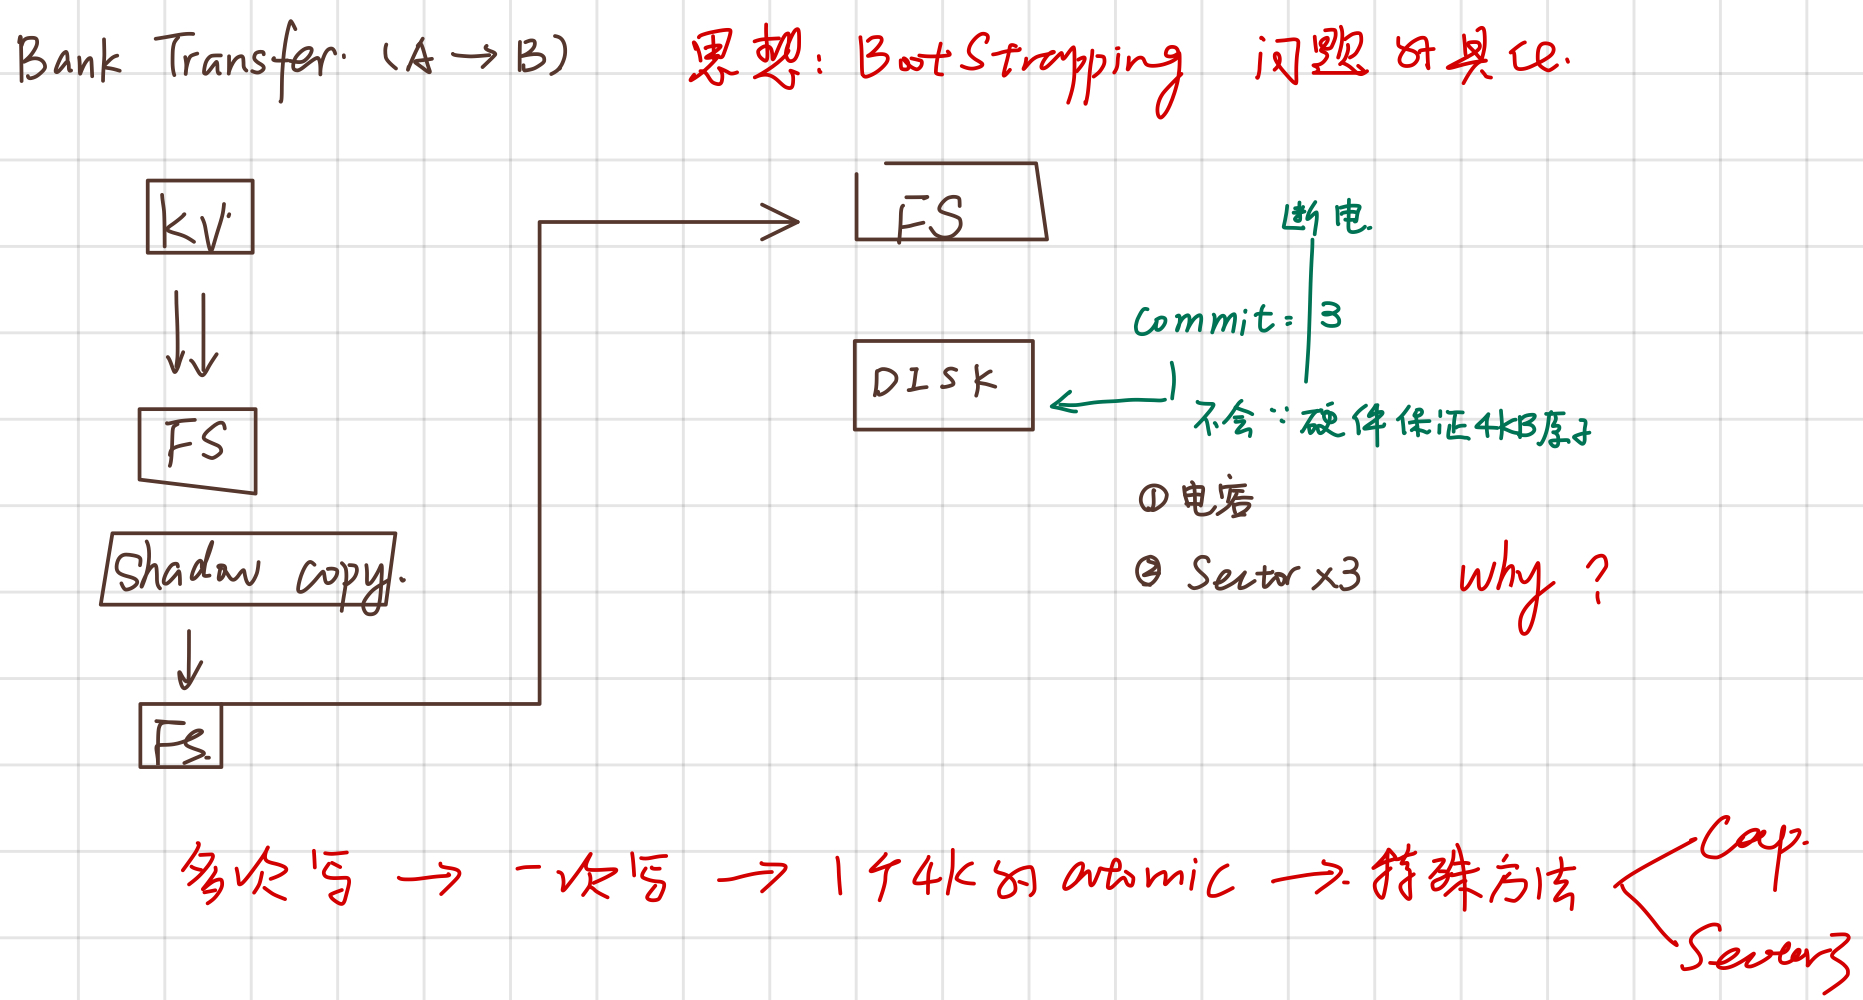 Bank Transfer. (A → B)
思想: BootStrapping 问题的具化.
KV
FS
Shadow copy.
FS.
FS
DISK
断电
commit: 3
不会∵硬件保证4KB原子
① 电容
② Sector ×3
why ?
多次写 → 一次写 → 1个4K的 atomic → 特殊方法
Cap.
Sector3